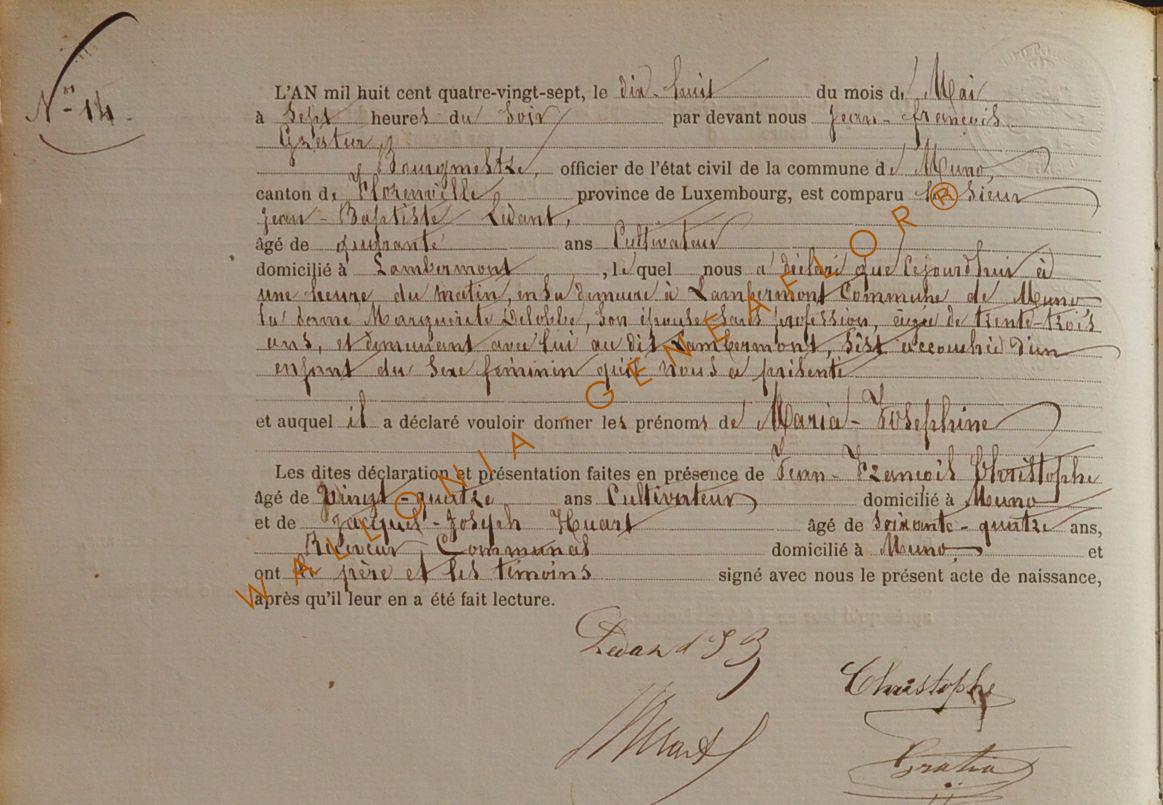 N° 14.
L'AN mil huit cent quatre-vingt-sept, le dix-huit du mois de Mai
à Sept heures du Soir par devant nous Jean-françois
Bourgmestre, officier de l'état civil de la commune de Muno,
canton de Florenville province de Luxembourg, est comparu le Sieur
Jean-Baptiste Ledant,
âgé de quarante ans Cultivateur
domicilié à Lambermont, lequel nous a déclaré que cejourd'hui à
une heure du matin, en sa demeure à Lambermont Commune de Muno
la dame Marguerite Delobbe, son épouse, sans profession, âgée de trente-trois
ans, et demeurant avec lui au dit Lambermont, s'est accouchée d'un
enfant du sexe féminin qu'il nous a présenté
et auquel il a déclaré vouloir donner les prénoms de Maria-Josephine
Les dites déclaration et présentation faites en présence de Jean-François Christophe
âgé de Vingt-quatre ans Cultivateur domicilié à Muno
et de Jacques-Joseph Huart âgé de soixante-quatre ans,
Receveur Communal domicilié à Muno et
ont le père et les témoins signé avec nous le présent acte de naissance,
après qu'il leur en a été fait lecture.
Ledant J B
Christophe
Huart
WALLONIA-GENEAFLOR®